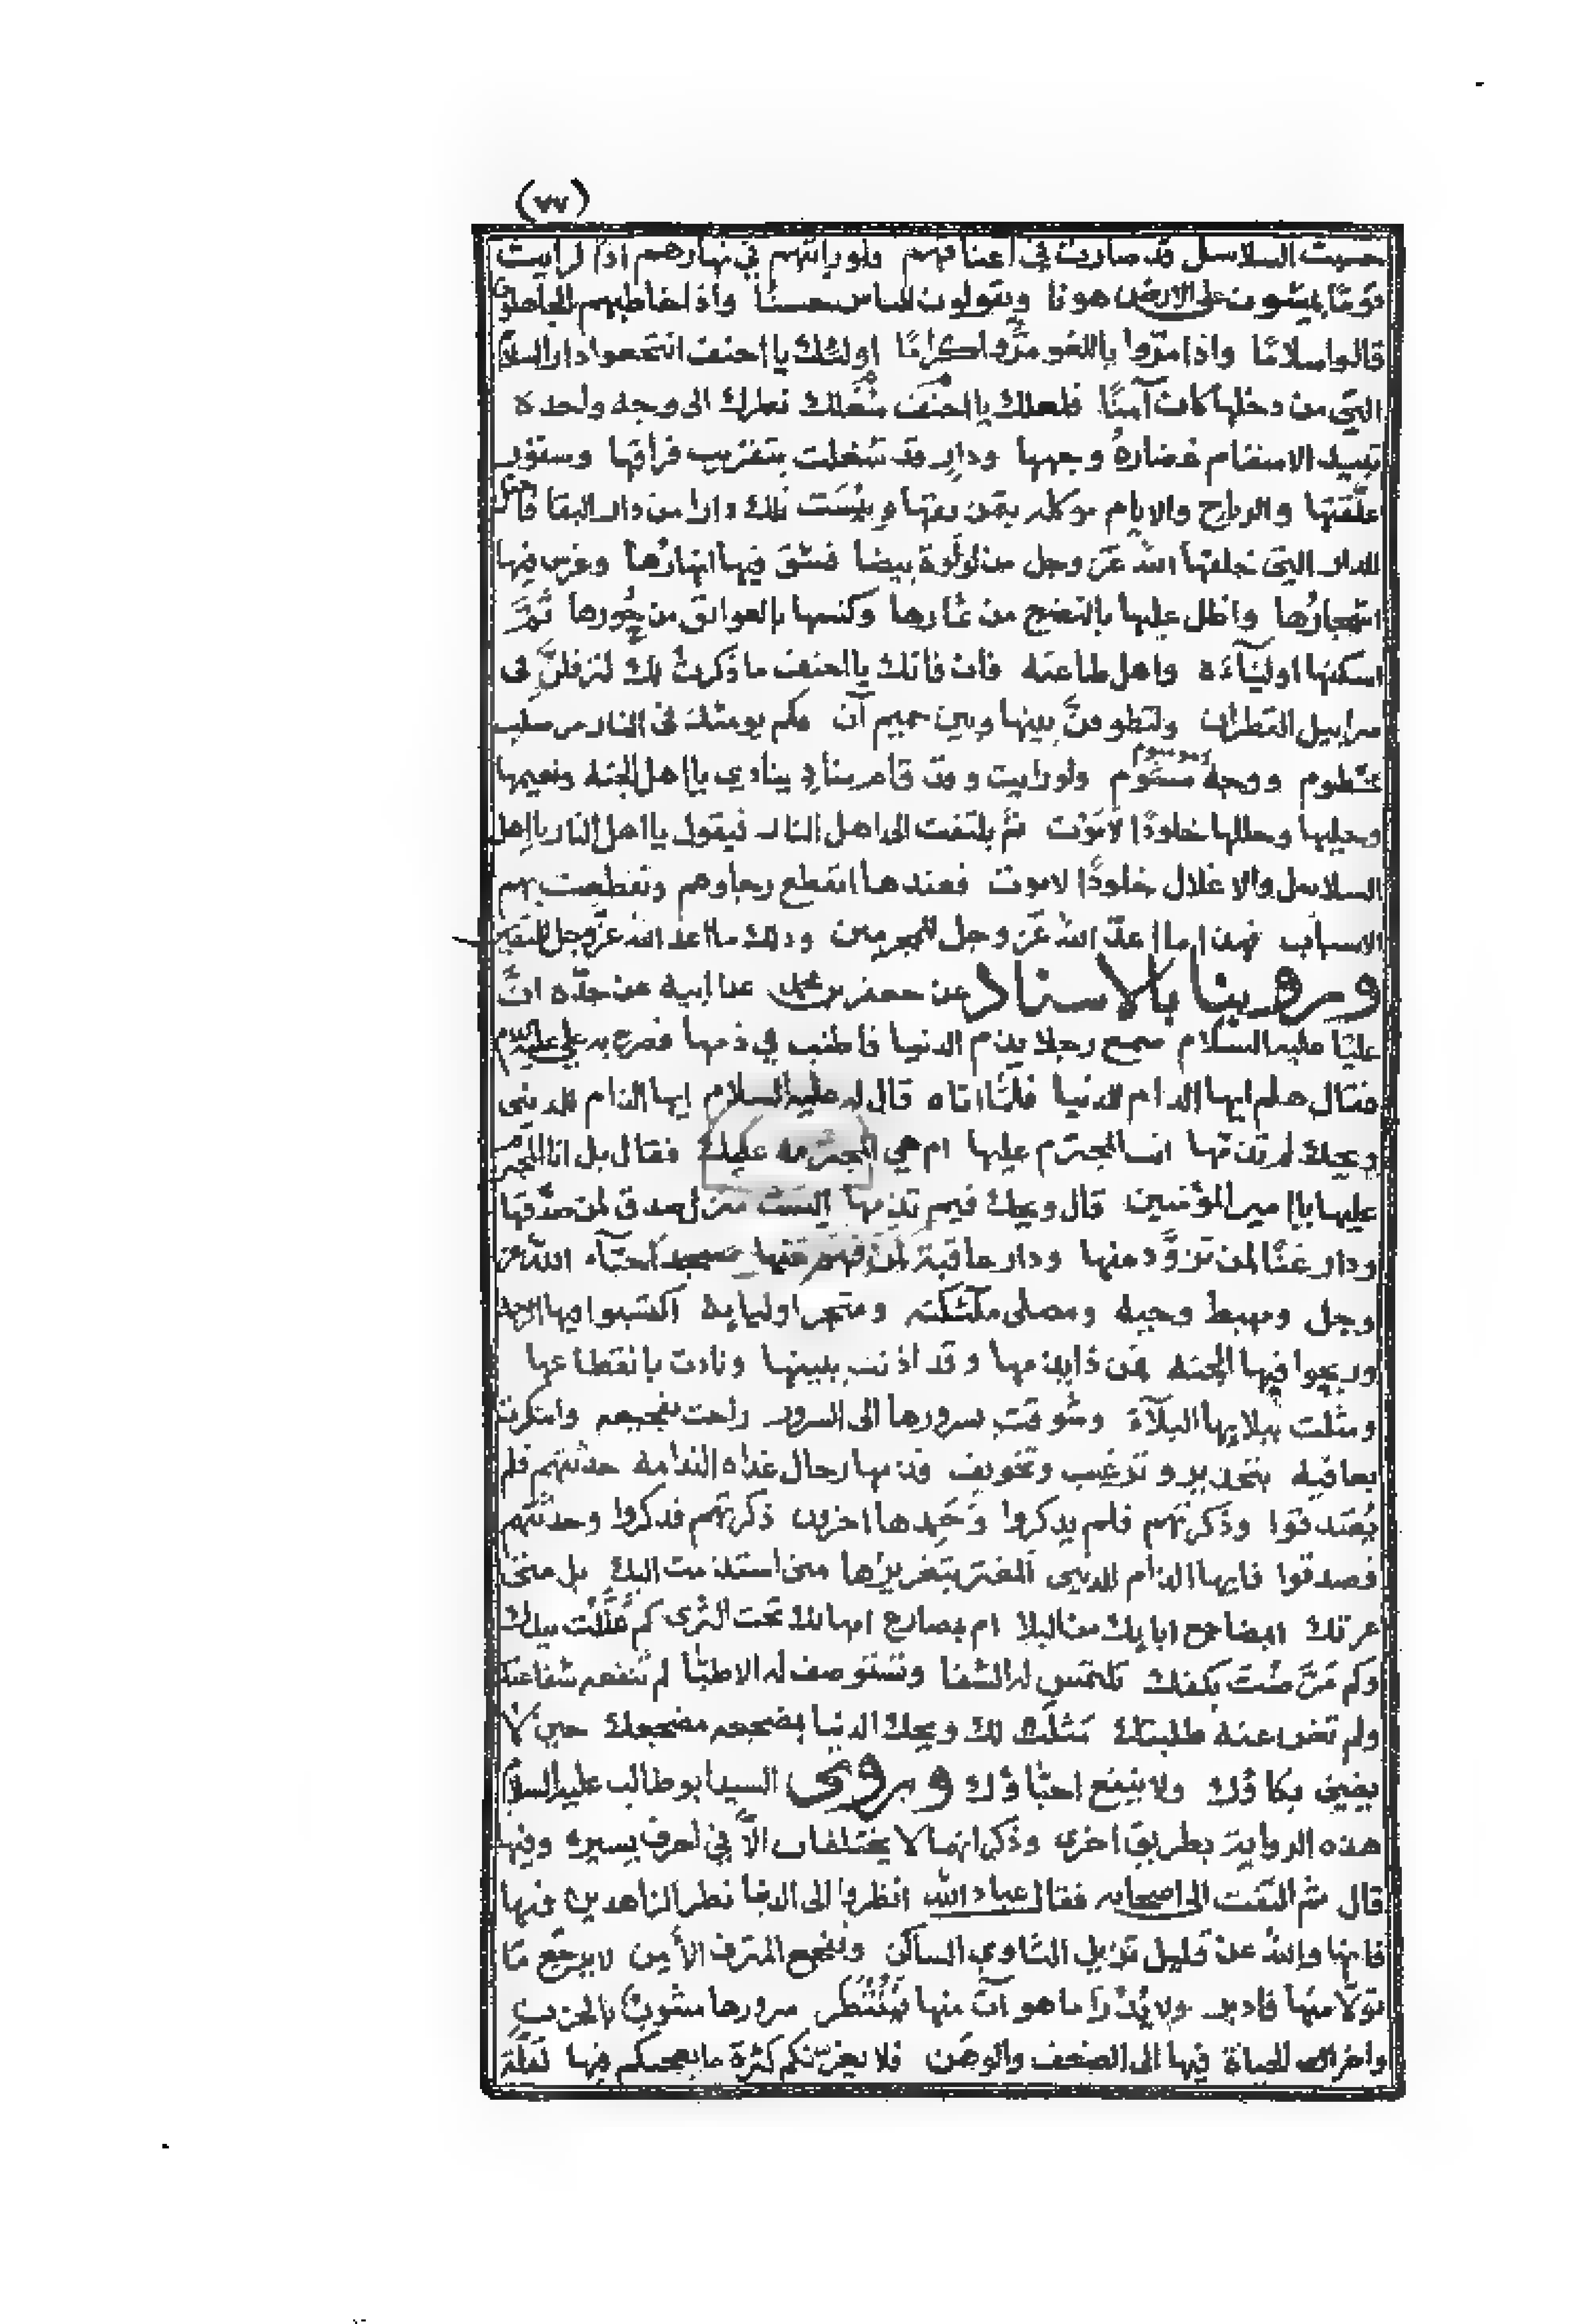 (٧٧)
حسبت السلاسل قد صارت في اعناقهم ولو رايتهم في نهارهم اذا لرايت
قومًا يمشون على الارض هونا ويقولون للناس حسنًا واذا خاطبهم الجاهلون
قالوا سلامًا واذا مرّوا باللغو مرّوا كرامًا اولئك يا احنف انتجعوا دار السلام
التي من دخلها كان آمنًا فلعلك يا احنف شغلك نظرك الى وجه واحده
تبيد الاسقام غضارة وجهها ودار قد شغلت بتقريب فراقها وستور
علّقتها والرياح والايام موكله بتمزيقها وبئست تلك دارا من دار البقا فاحتل
للدار التي خلقها الله عز وجل من لولوة بيضا فشق فيها انهارها وغرس فيها
اشجارها واظل عليها بالنضج من ثمارها وكنسها بالعواتق من حورها ثمّ
اسكنها اوليآءه واهل طاعته فان فاتك يا احنف ما ذكرت لك لترفلنّ في
سرابيل القطران ولتطوفنّ بينها وبين حميم آن فكم يومئذ في النار من صلب
محطوم ووجه مشئوم ولو رايت وقد قام مناد ينادي يا اهل الجنه ونعيمها
وحليها وحللها خلودًا لا موت ثم يلتفت الى اهل النار فيقول يا اهل النار يا اهل
السلاسل والاغلال خلودًا لا موت فعندها انقطع رجاوهم وتقطعت بهم
الاسباب فهذا ما اعدّ الله عزّ وجل للمجرمين وذلك ما اعد الله عز وجل للمتقين
وروينا بالاسناد عن جعفر بن محمد عن ابيه عن جدّه انّ
عليّا عليه السلام سمع رجلا يذم الدنيا فاطنب في ذمها فصرخ به علي عليه السلام
فقال هلم ايها الذام للدنيا فلمّا اتاه قال له عليه السلام ايها الذام للدنيى
ويحك لم تذمّها انت المجترم عليها ام هي المجترمه عليك فقال بل انا المجترم
عليها يا امير المؤمنين قال ويحك فيم تذمها اليست منزل صدق لمن صدّقها
ودار غنًا لمن تزوّد منها ودار عاقبة لمن فهم عنها مسجد احبّآء الله عز
وجل ومهبط وحيه ومصلى ملئكته ومتجر اوليايه اكتسبوا فيها الرحمة
وربحوا فيها الجنه فمن ذا يذمها وقد اذنت ببينها ونادت بانقطاعها
ومثلت ببلايها البلآء وشوقت بسرورها الى السرور راحت بفجيعه وابتكرت
بعافيه بتحذير وترغيب وتخويف فذمها رجال غداه الندامه حدثتهم فلم
يصدقوا وذكرتهم فلم يذكروا وحمدها اخرون ذكرتهم فذكروا وحدثتهم
فصدقوا فايها الذام للدنيى المغتر بتغريرها متى استذمت اليك بل متى
غرتك ابمضاجع ابايك من البلا ام بمصارع امهاتك تحت الثرى كم عللت بيدك
وكم مرّضت بكفك تلتمس له الشفا وتستوصف له الاطبا لم تنفعه شفاعتك
ولم تغن عنه طلبتك مثلت لك ويحك الدنيا بمضجعه مضجعك حين لا
يغني بكاؤك ولا ينفع احبّاؤك وروى السيد ابو طالب عليه السلام
هذه الروايه بطريق اخرى وذكر انهما لا يختلفان الّا في احرف يسيره وفيها
قال ثم التفت الى اصحابه فقال عباد الله انظروا الى الدنيا نظر الزاهدين فيها
فانها والله عن قليل تزيل الثاوي الساكن وتفجع المترف الأمن لا يرجع ما
تولّا منها فادبر ولا يدرا ما هو آت منها فيُنتظر سرورها مشوب بالحزن
واخر الحياة فيها الى الضعف والوهن فلا يغرّنكم كثرة ما يعجبكم فيها لقلّة